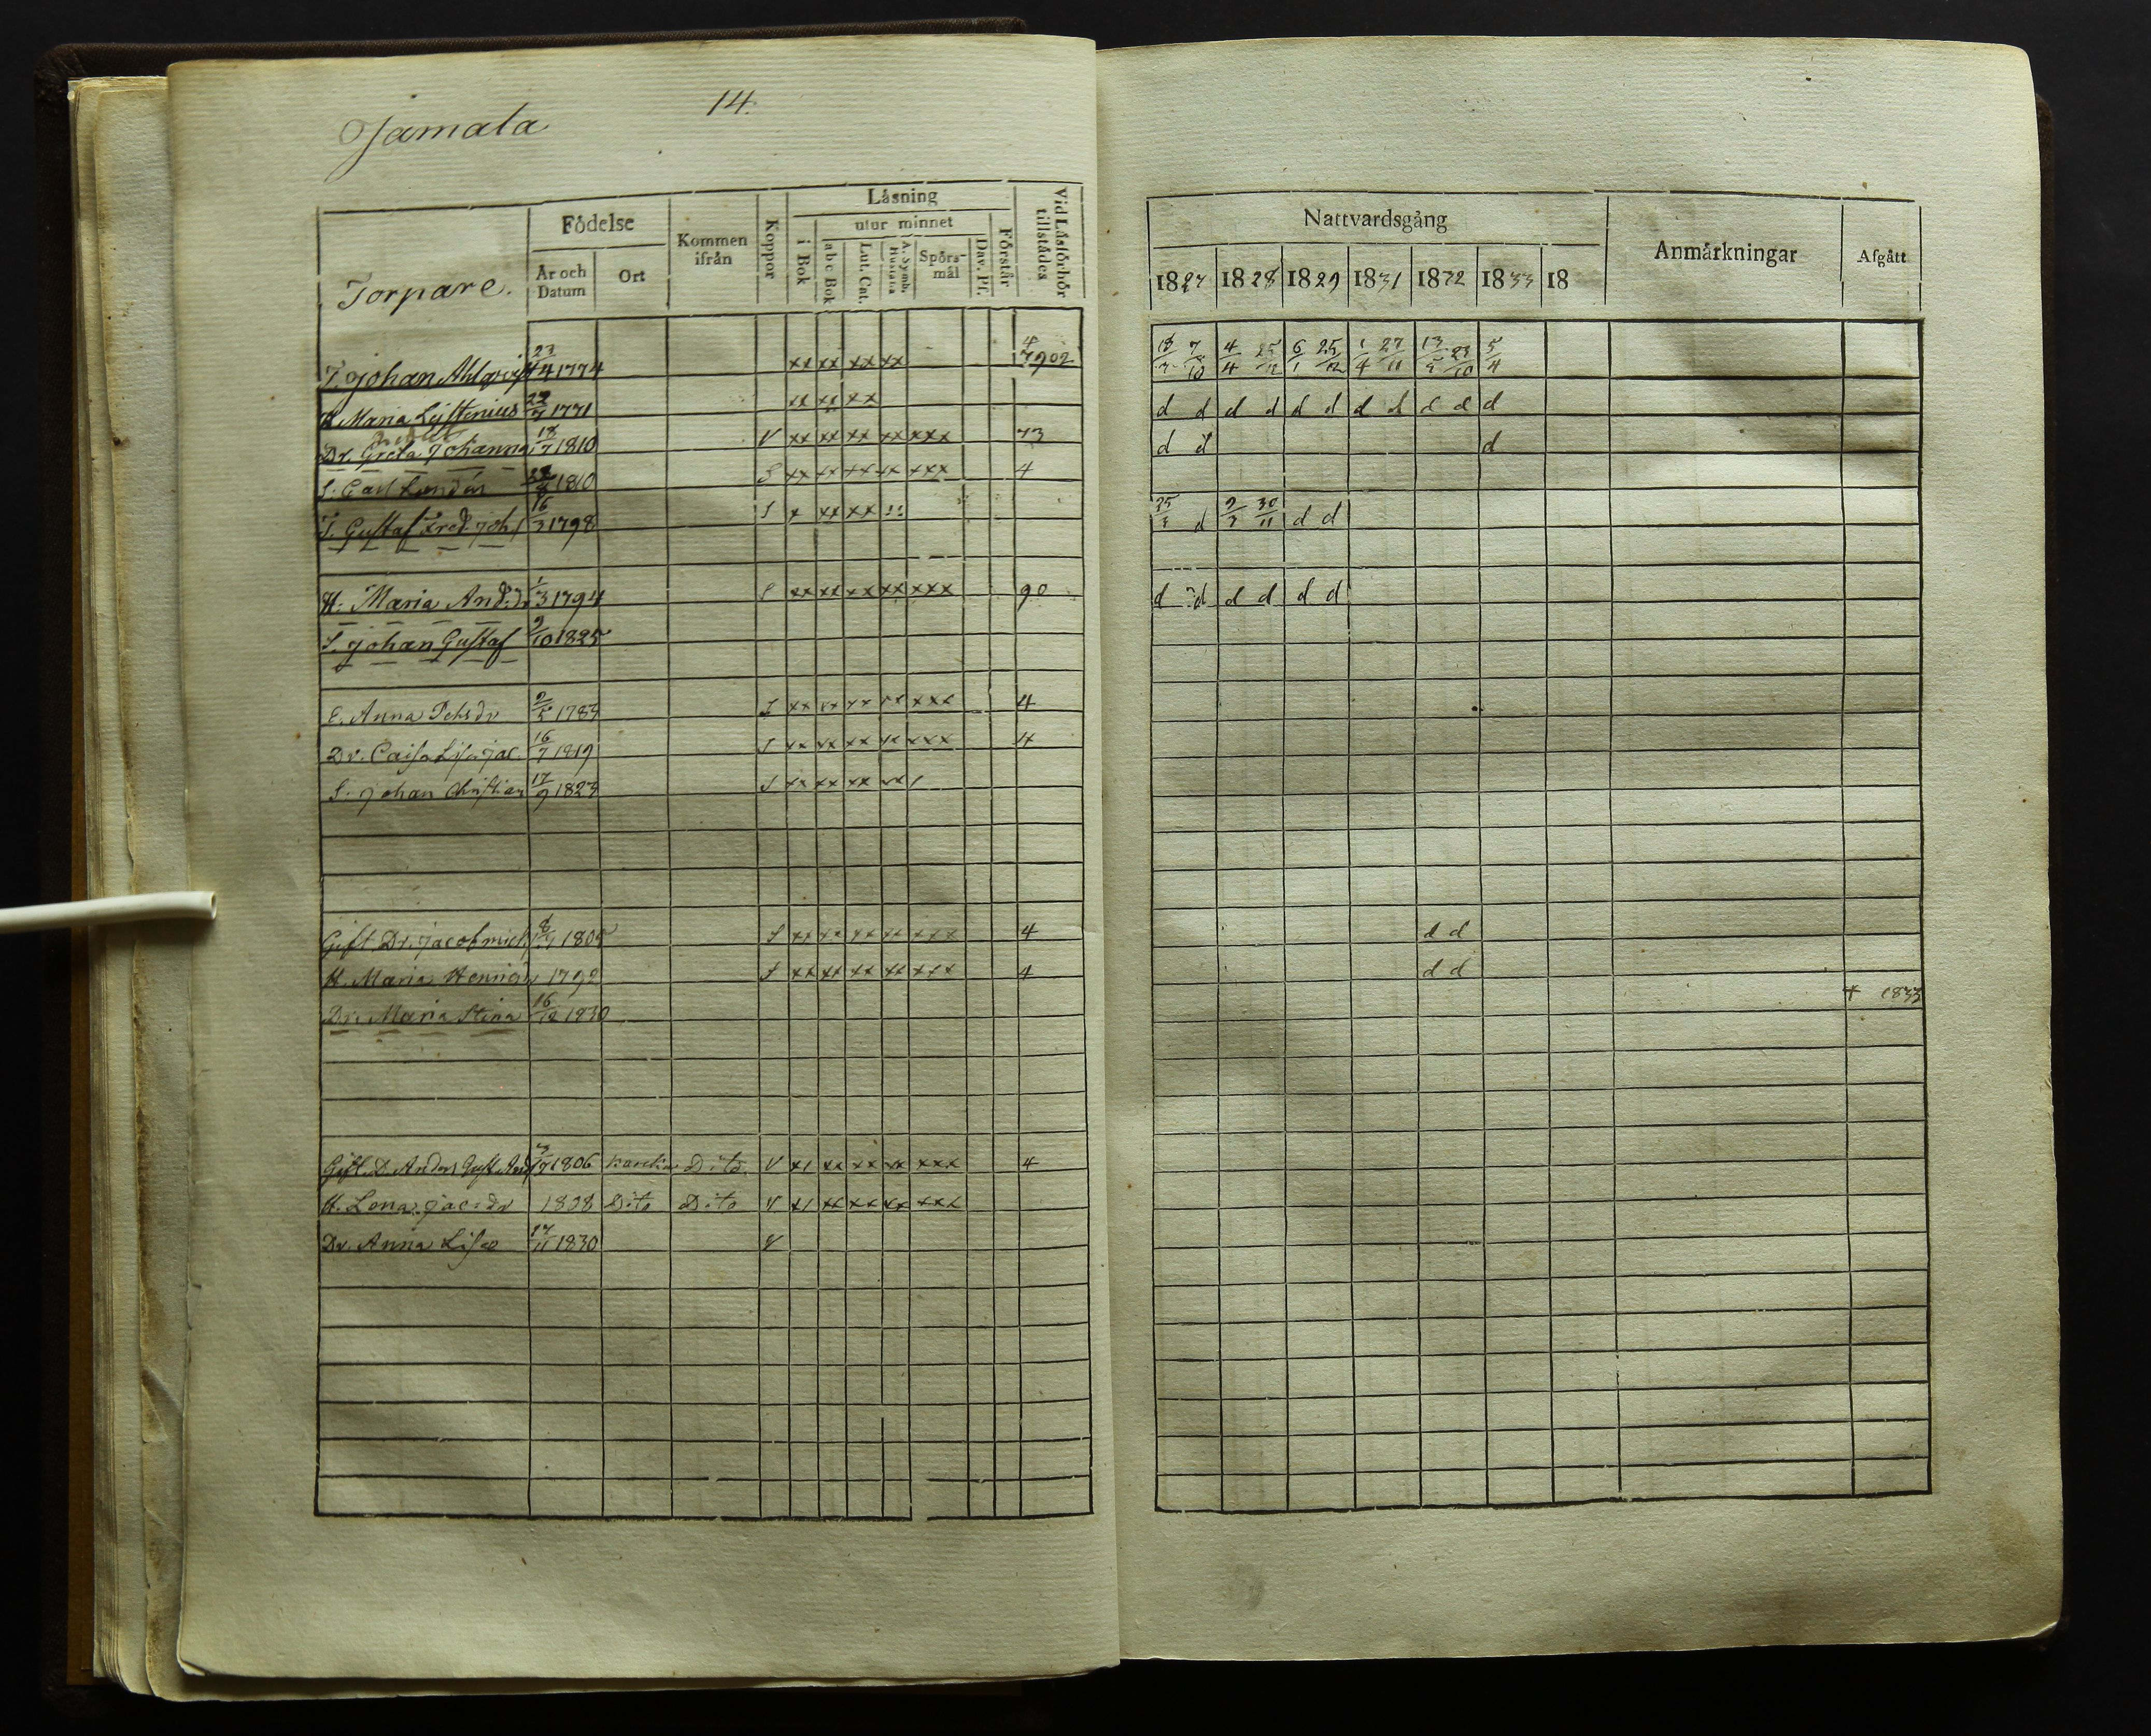 14.
Jamala
Torpare.
Födelse
År och Datum
Ort
Kommen ifrån
Koppor
Läsning
i Bok
utur minnet
abc Bok
Lut. Cat.
A. Symb. Hustafla
Spörs-mål
Dav. Ps.
Förstår
Vid Läsförhör tillstädes
Nattvardsgång
1827 1828 1829 1831 1832 1833 18
Anmärkningar
Afgått
T. Johan Ahlqvist 23/4 1774 xx xx xx xx 4 7902 18 7/10 4/4 25/12 6/1 25/12 1/4 27/11 13/5 23/10 5/4
H. Maria 1771 xx xx xx d d d d d d d d d d d
Dr. Greta Johanna 18/7 1810 V xx xx xx xx xxx 73 d d d
S. Carl 1810 S xx xx xx xx xxx 4
T. Gustaf Fred Joh 16/3 1798 S x xx xx 25/3 d 2/3 30/11 d d
H. Maria And:dr 1/3 1794 S xx xx xx xx xxx 90 d d d d d d
S. Johan Gustaf 9/10 1825
E. Anna 9/5 1783 S xx xx xx xx xxx 4
Dr. Caisa Lisa Jac. 16/7 1819 S xx xx xx xx xxx 4
S. Johan Christian 17/9 1823 S xx xx xx xx
Gift Dr. Jacob Mich 1805 S xx xx xx xx xxx 4 d d
H. Maria 1792 S xx xx xx xx xxx 4 d d
Dr. Maria Stina 16/12 1830 † 1833
Gift D. Anders Gust And 1806 Dito V x/ xx xx xx xxx 4
H. Lena Jac:dr 1808 Dito Dito V x/ xx xx xx xxx
Dr. Anna Lisa 17/11 1830 V